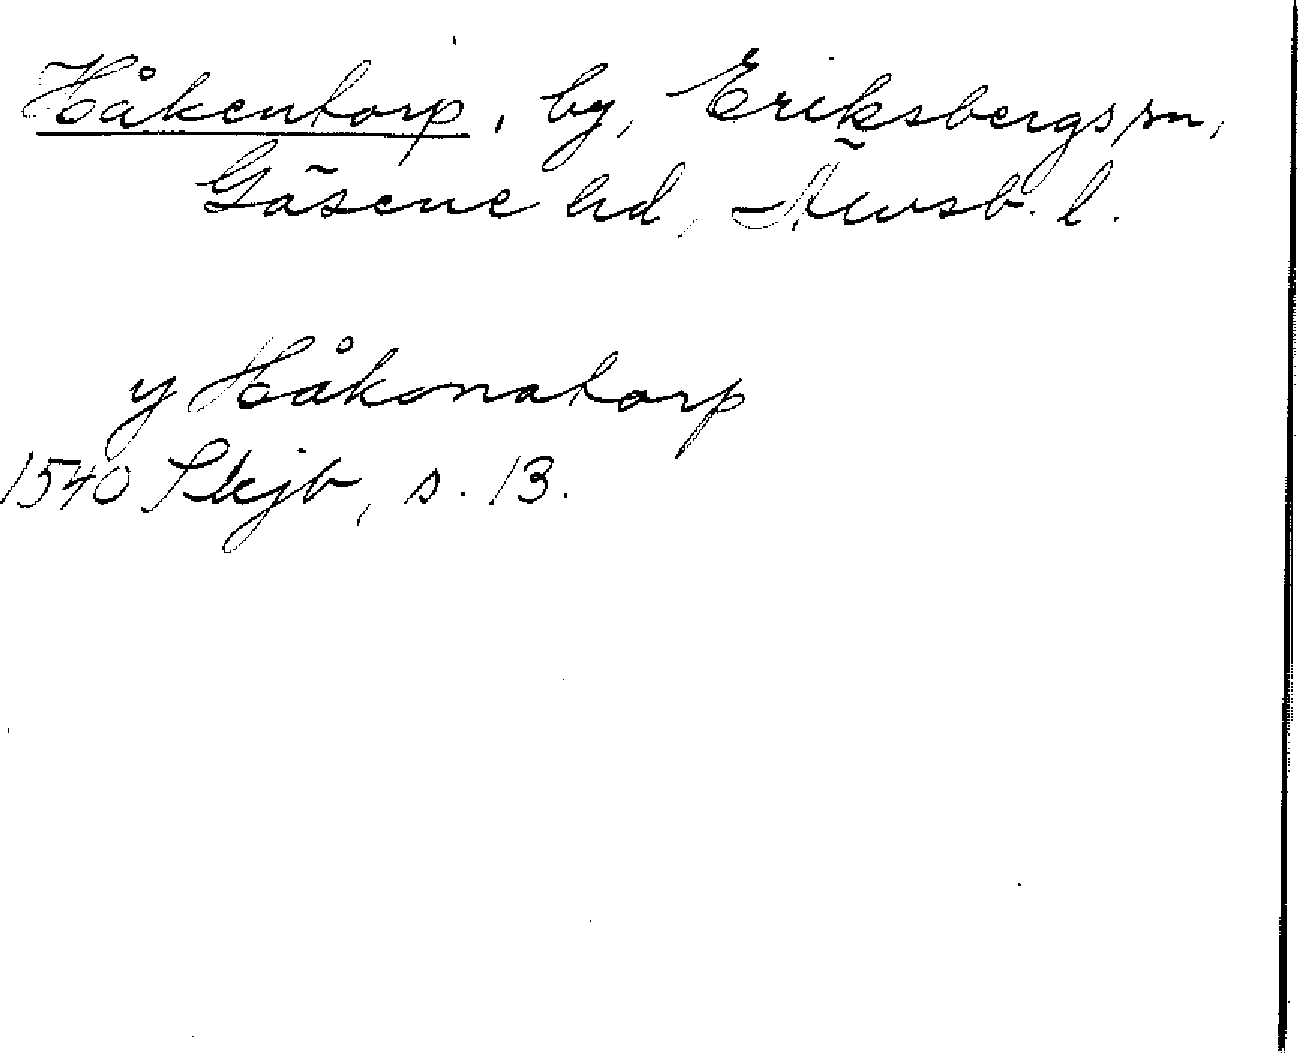 Håkentorp, by, Eriksbergs sn,
Gäsene hd, Älvsb. l.
y Håkonatorp
1540 Skjb, s. 13.